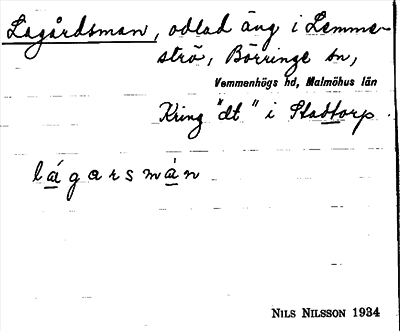 Lagårdsman, odlad äng i Lemme-
strö, Börringe sn,
Vemmenhögs hd, Malmöhus län
Kring "dt" i Stadtorp.
lágarsmàn
NILS NILSSON 1934